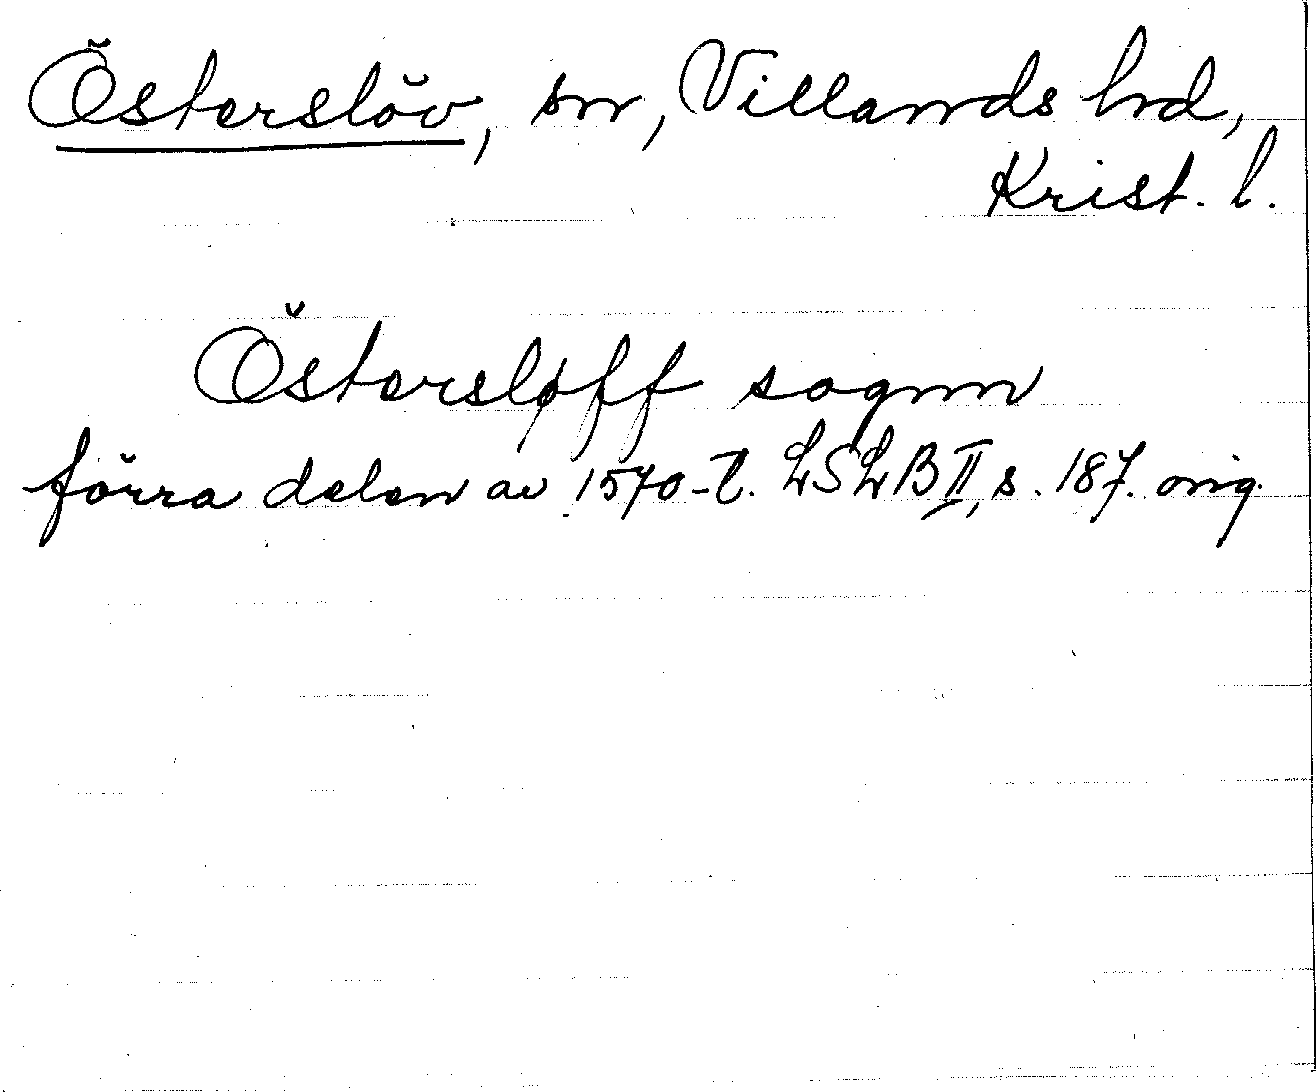 Österslöv, sn, Villands hrd,
Krist. l.
Östersløff sognn
förra delen av 1570-t. LSLB II, s. 187. orig.